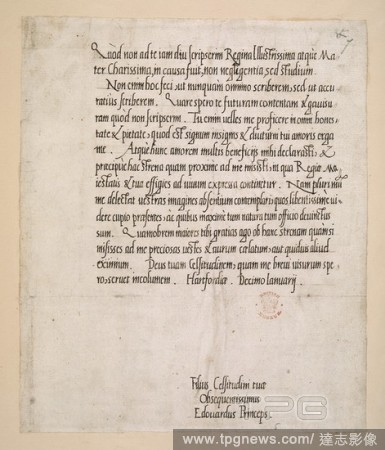 Quòd non ad te iam diu scripserim Regina Illustrissima atque Ma-
ter Charissima, in causa fuit, non negligentia, sed studium.
Non enim hoc feci ut nunquam omnino scriberem, sed ut accu-
ratius scriberem. Quare spero te futuram contentam & gauisu-
ram quod non scripserim. Tu enim uelles me proficere in omni hones-
tate & pietate, quod est signum insignis & diuturni tui amoris erga
me. Atque hunc amorem multis beneficijs mihi declarasti, &
præcipue hac strena quam proxime ad me misisti, in qua Regiæ Ma-
iestatis & tua effigies ad uiuum expressa continetur. Nam plurimum
me delectat uestras imagines absentium contemplari, quos libentissime ui-
dere cupio præsentes, ac quibus maxime tum natura tum officio deuinctus
sum. Quamobrem maiores tibi gratias ago ob hanc strenam quàm si
misisses ad me preciosas uestes aut aurum cælatum, aut quiduis aliud
eximium. Deus tuam Celsitudinem, quam me breui uisurum spe-
ro, seruet incolumem. Hartfordiæ. Decimo Ianuarij.
Filius Celsitudini tuæ
Obsequentissimus
Edouardus Princeps.
PG
www.tpgnews.com / 達志影像